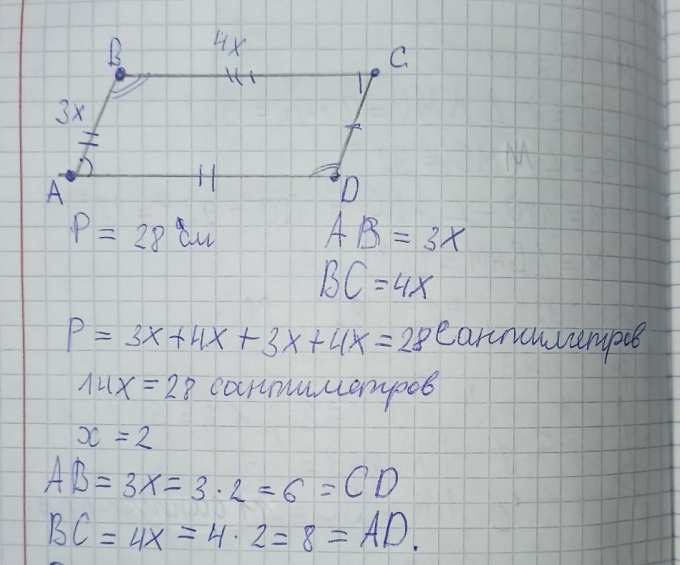 B 4x C
3x
A D
P = 28 см AB = 3x
BC = 4x
P = 3x + 4x + 3x + 4x = 28 сантиметров
14x = 28 сантиметров
x = 2
AB = 3x = 3 · 2 = 6 = CD
BC = 4x = 4 · 2 = 8 = AD.